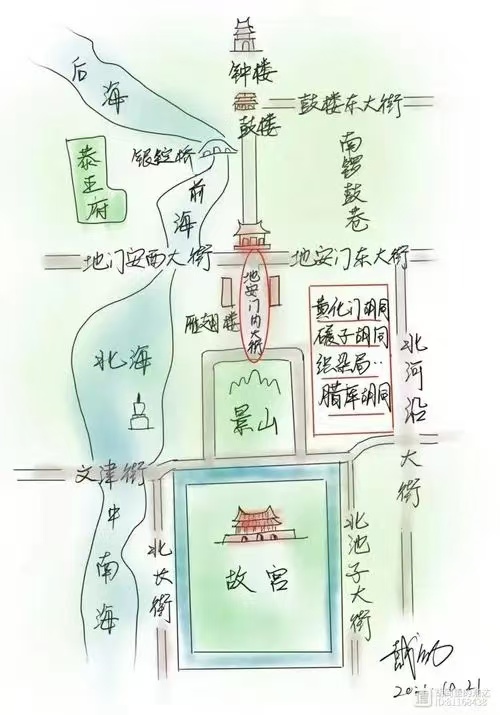 钟楼
后海
鼓楼
鼓楼东大街
恭王府
银锭桥
前海
南锣鼓巷
地门安西大街
地安门东大街
地安门内大街
雁翅楼
黄化门胡同
碾子胡同
织染局..
腊库胡同
北海
景山
北河沿大街
文津街
中南海
北长街
故宫
北池子大街
2021.10.21
ID:81168438